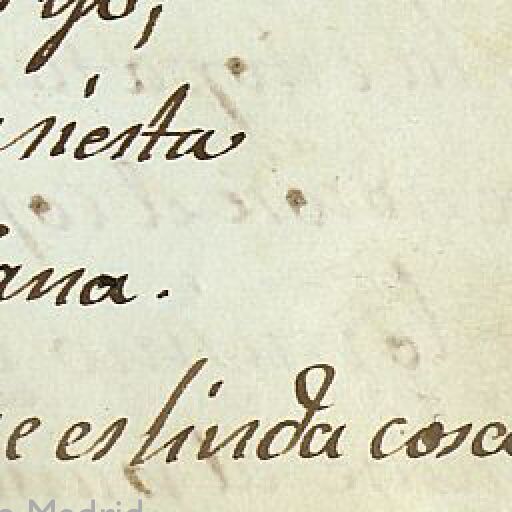 siesta
ana.
e es linda cosa
Madrid